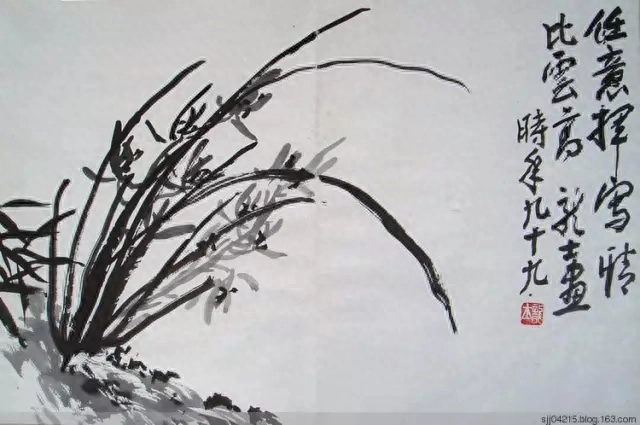 任意揮寫情
比雲高 龍士畫
時年九十九
sjj04215.blog.163.com